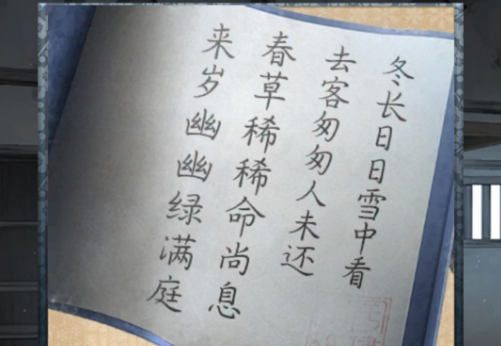 冬长日日雪中看
去客匆匆人未还
春草稀稀命尚息
来岁幽幽绿满庭